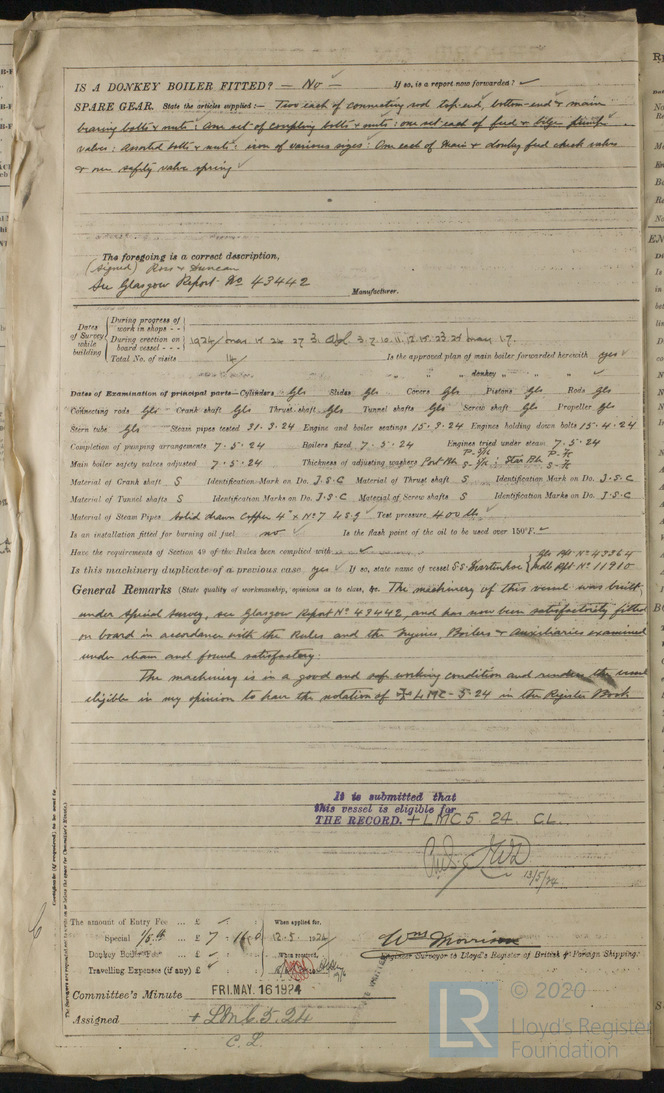 IS A DONKEY BOILER FITTED? — No — If so, is a report now forwarded?
SPARE GEAR. State the articles supplied:— Two each of connecting rod top-end, bottom-end & main
bearing bolts & nuts: One set of coupling bolts & nuts: one set each of feed & bilge pump
valves: Assorted bolts & nuts: iron of various sizes: One each of main & donkey feed check valves
& one safety valve spring
The foregoing is a correct description,
(Signed) Ross & Duncan
See Glasgow Report No 43442 Manufacturer.
Dates of Survey while building
During progress of work in shops - -
During erection on board vessel - - 1924 Mar. 14 26 27 31 Apl. 3.7.10.11.12.15.23.25 May 1.7.
Total No. of visits 14 Is the approved plan of main boiler forwarded herewith yes
" " " donkey " " "
Dates of Examination of principal parts—Cylinders Gls Slides Gls Covers Gls Pistons Gls Rods Gls
Connecting rods Gls Crank shaft Gls Thrust shaft Gls Tunnel shafts Gls Screw shaft Gls Propeller Gls
Stern tube Gls Steam pipes tested 31.3.24 Engine and boiler seatings 15.3.24 Engines holding down bolts 15.4.24
Completion of pumping arrangements 7.5.24 Boilers fixed 7.5.24 Engines tried under steam 7.5.24
Main boiler safety valves adjusted 7.5.24 Thickness of adjusting washers Port Blr Star Blr
Material of Crank shaft S Identification Mark on Do. J.S.C Material of Thrust shaft S Identification Mark on Do. J.S.C
Material of Tunnel shafts S Identification Marks on Do. J.S.C Material of Screw shafts S Identification Marks on Do. J.S.C
Material of Steam Pipes Solid drawn Copper 4" x No 7 LSG Test pressure 400 lbs
Is an installation fitted for burning oil fuel no Is the flash point of the oil to be used over 150°F.
Have the requirements of Section 49 of the Rules been complied with
Gls Rpt No 43364
Is this machinery duplicate of a previous case yes If so, state name of vessel S.S. Rpt No 11910
General Remarks (State quality of workmanship, opinions as to class, &c. The machinery of this vessel was built
under special survey, see Glasgow Report No. 43442, and has now been satisfactorily fitted
on board in accordance with the Rules and the Engines, Boilers & Auxiliaries examined
under steam and found satisfactory.
The machinery is in a good and safe working condition and renders the vessel
eligible in my opinion to have the notation of LMC - 5.24 in the Register Book
It is submitted that
this vessel is eligible for
THE RECORD. + LMC 5. 24. CL.
13/5/24
The amount of Entry Fee ... £ When applied for,
Special ... £ 7 : 16 : 0 12.5.1924
Donkey Boiler Fee ... £ When received,
Travelling Expenses (if any) £
Wm Morrison
Engineer Surveyor to Lloyd's Register of British & Foreign Shipping.
Committee's Minute FRI. MAY. 16 1924
Assigned + LMC 5.24
C.L.
© 2020
LR
Lloyd's Register
Foundation